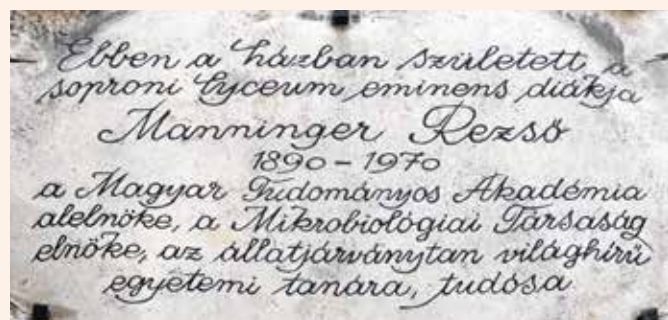 Ebben a házban született a
soproni lyceum eminens diákja
Manninger Rezső
1890 - 1970
a Magyar Tudományos Akadémia
alelnöke, a Mikrobiológiai Társaság
elnöke, az állatjárványtan világhírű
egyetemi tanára, tudósa